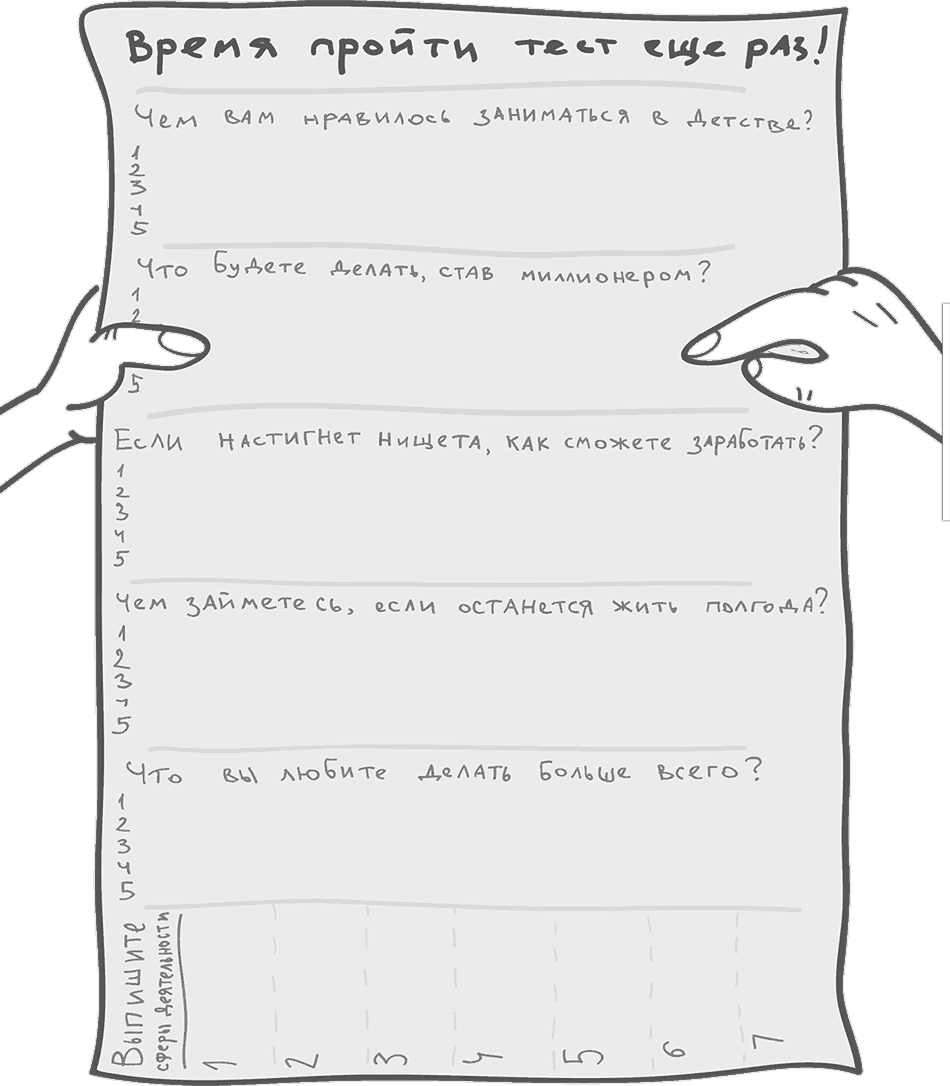 Время пройти тест еще раз!
Чем вам нравилось заниматься в детстве?
1
2
3
4
5
Что будете делать, став миллионером?
1
2
5
Если настигнет нищета, как сможете заработать?
1
2
3
4
5
Чем займетесь, если останется жить полгода?
1
2
3
4
5
Что вы любите делать больше всего?
1
2
3
4
5
Выпишите
сферы деятельности
1
2
3
4
5
6
7